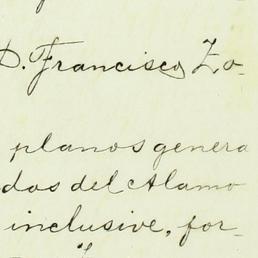 D. Francisco Zo-
planos genera
dos del Alamo
inclusive, for-